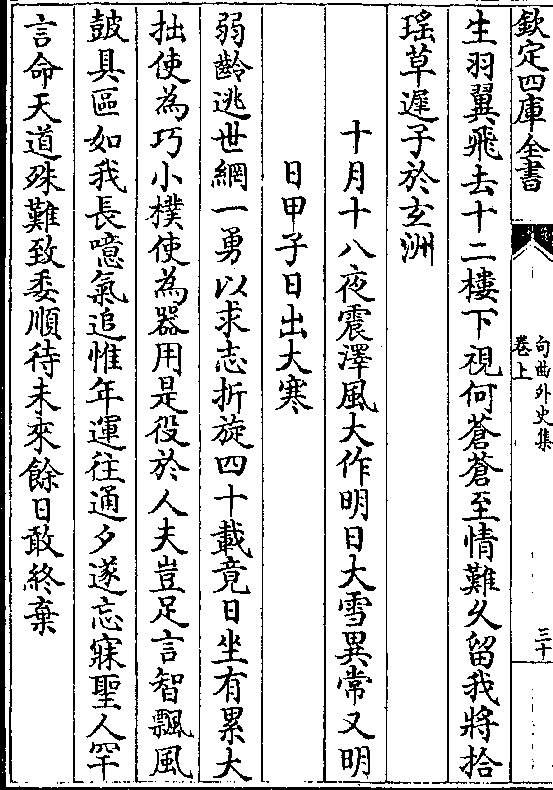 欽定四庫全書
句曲外史集
卷上
三十
生羽翼飛去十二樓下視何蒼蒼至情難久留我將拾
瑶草遲子於玄洲
十月十八夜震澤風大作明日大雪異常又明
日甲子日出大寒
弱齡逃世網一勇以求志折旋四十載竟日坐有累大
拙使為巧小樸使為器用是役於人夫豈足言智飄風
皷具區如我長噫氣追惟年運往通夕遂忘寐聖人罕
言命天道殊難致委順待未來餘日敢終棄